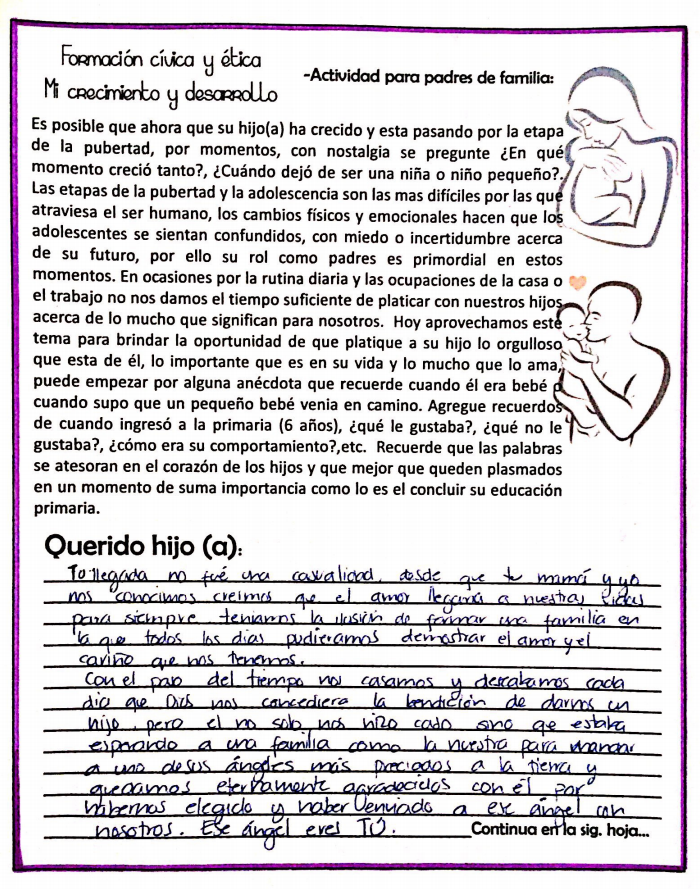 Formación cívica y ética
Mi crecimiento y desarrollo
-Actividad para padres de familia:
Es posible que ahora que su hijo(a) ha crecido y esta pasando por la etapa
de la pubertad, por momentos, con nostalgia se pregunte ¿En qué
momento creció tanto?, ¿Cuándo dejó de ser una niña o niño pequeño?.
Las etapas de la pubertad y la adolescencia son las mas difíciles por las que
atraviesa el ser humano, los cambios físicos y emocionales hacen que los
adolescentes se sientan confundidos, con miedo o incertidumbre acerca
de su futuro, por ello su rol como padres es primordial en estos
momentos. En ocasiones por la rutina diaria y las ocupaciones de la casa o
el trabajo no nos damos el tiempo suficiente de platicar con nuestros hijos
acerca de lo mucho que significan para nosotros. Hoy aprovechamos este
tema para brindar la oportunidad de que platique a su hijo lo orgulloso
que esta de él, lo importante que es en su vida y lo mucho que lo ama,
puede empezar por alguna anécdota que recuerde cuando él era bebé o
cuando supo que un pequeño bebé venia en camino. Agregue recuerdos
de cuando ingresó a la primaria (6 años), ¿qué le gustaba?, ¿qué no le
gustaba?, ¿cómo era su comportamiento?,etc. Recuerde que las palabras
se atesoran en el corazón de los hijos y que mejor que queden plasmados
en un momento de suma importancia como lo es el concluir su educación
primaria.
Querido hijo (a):
Tu llegada no fué una casualidad, desde que tu mamá y yo
nos conocimos creimos que el amor llegaria a nuestras vidas
para siempre teniamos la ilusión de formar una familia en
la que todos los dias pudieramos demostrar el amor y el
cariño que nos tenemos.
Con el paso del tiempo nos casamos y deseabamos cada
dia que Dios nos concediera la bendición de darnos un
hijo, pero el no solo nos hizo caso sino que estaba
esperando a una familia como la nuestra para mandar
a uno de sus ángeles más preciados a la tierra y
quedamos eternamente agradecidos con él por
habernos elegido y haber enviado a ese ángel con
nosotros. Ese ángel eres TÚ.
Continua en la sig. hoja...